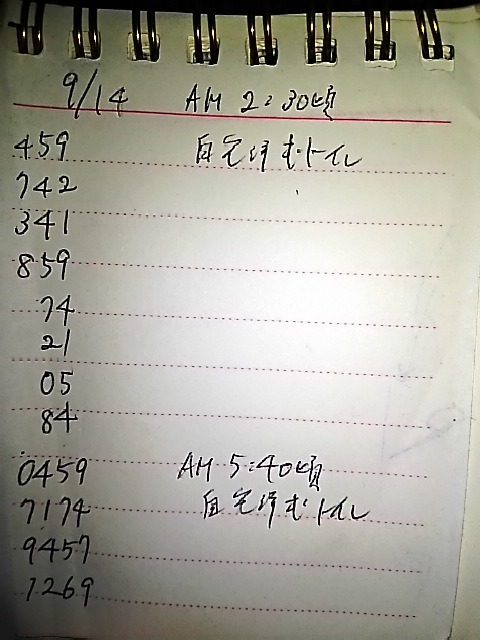 9/14 AM 2:30頃
459 自宅 トイレ
742
341
859
74
21
05
84
0459 AM 5:40頃
7174 自宅 トイレ
9457
7269